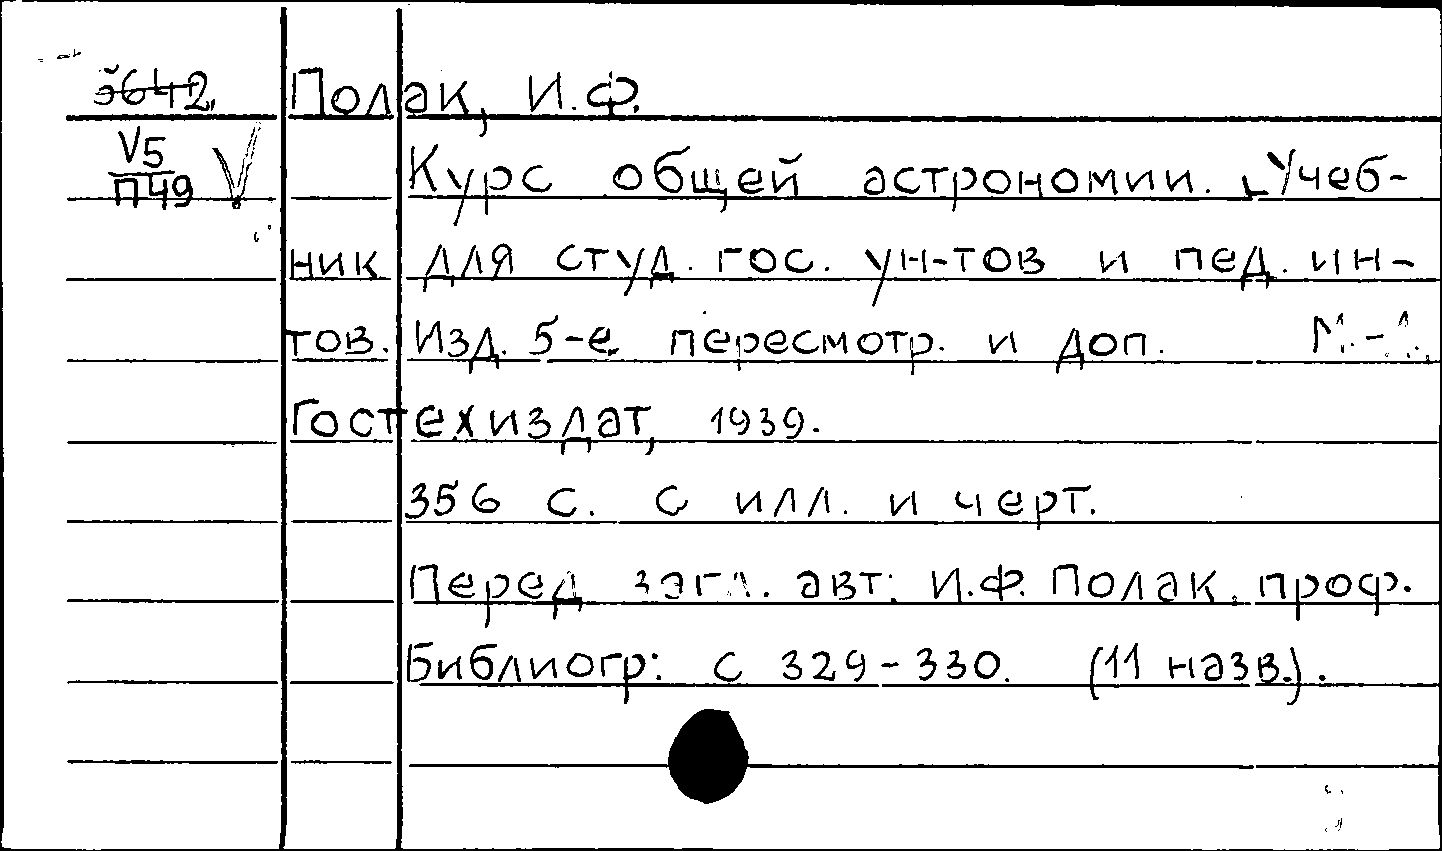 Э642
Полак, И.Ф.
V5
П49
Курс общей астрономии. Учеб-
ник для студ. гос. ун-тов и пед. ин-
тов. Изд. 5-е пересмотр. и доп.
Гостехиздат, 1939.
356 с. с илл. и черт.
Перед загл. авт: И.Ф. Полак, проф.
Библиогр: с 329-330. (11 назв.).